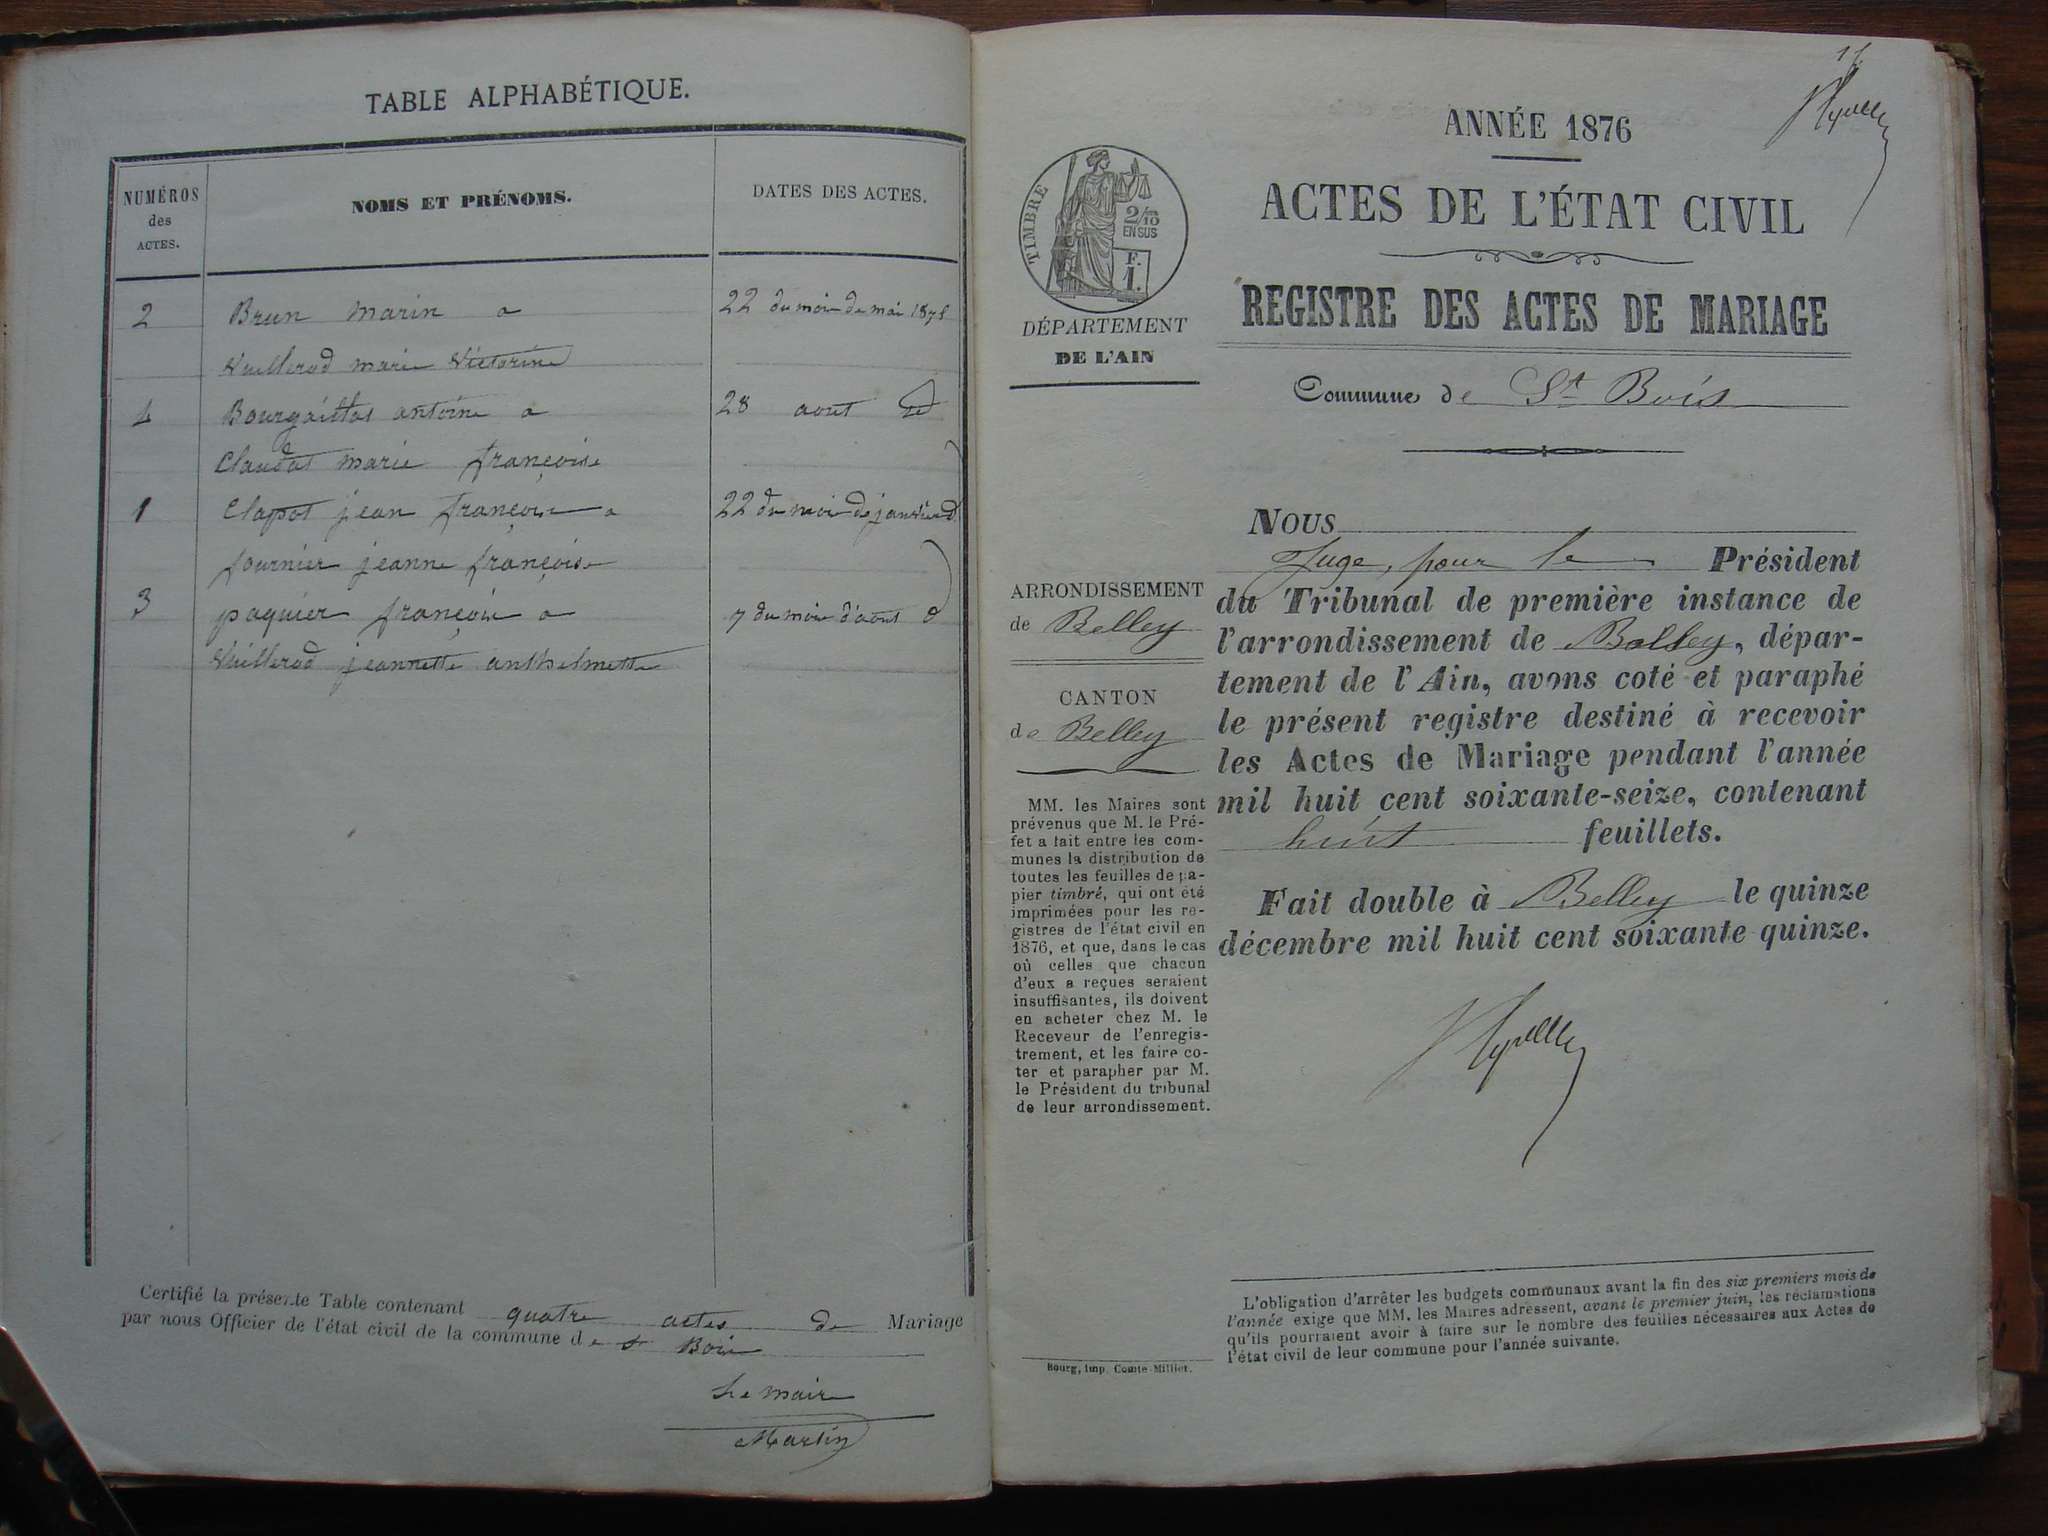 TABLE ALPHABÉTIQUE.
NUMÉROS
des
ACTES.
NOMS ET PRÉNOMS.
DATES DES ACTES.
2 Brun marin a 22 du moi de mai 1875
Vuillerod marie Victorine
4 Bourgaillat antoine a 28 aout d
Claudat marie françoise
1 Clapot jean françois a 22 du moi de janvier d
fournier jeanne françoise
3 paquier françois a 7 du moi d'aout d
Vuillerod jeannette anthelmette
Certifié la présente Table contenant quatre actes de Mariage
par nous Officier de l'état civil de la commune de St Bois
Le maire
Martin
ANNÉE 1876
ACTES DE L'ÉTAT CIVIL
REGISTRE DES ACTES DE MARIAGE
TIMBRE
2/10
EN SUS
F.
1.
DÉPARTEMENT
DE L'AIN
Commune de St Bois
ARRONDISSEMENT
de Belley
CANTON
de Belley
MM. les Maires sont
prévenus que M. le Pré-
fet a fait entre les com-
munes la distribution de
toutes les feuilles de pa-
pier timbré, qui ont été
imprimées pour les re-
gistres de l'état civil en
1876, et que, dans le cas
où celles que chacun
d'eux a reçues seraient
insuffisantes, ils doivent
en acheter chez M. le
Receveur de l'enregis-
trement, et les faire co-
ter et parapher par M.
le Président du tribunal
de leur arrondissement.
NOUS
Juge, pour le Président
du Tribunal de première instance de
l'arrondissement de Belley, dépar-
tement de l'Ain, avons coté et paraphé
le présent registre destiné à recevoir
les Actes de Mariage pendant l'année
mil huit cent soixante-seize, contenant
huit feuillets.
Fait double à Belley le quinze
décembre mil huit cent soixante quinze.
L'obligation d'arrêter les budgets communaux avant la fin des six premiers mois de
l'année exige que MM. les Maires adressent, avant le premier juin, les réclamations
qu'ils pourraient avoir à faire sur le nombre des feuilles nécessaires aux Actes de
l'état civil de leur commune pour l'année suivante.
Bourg, imp. Comte-Milliet.